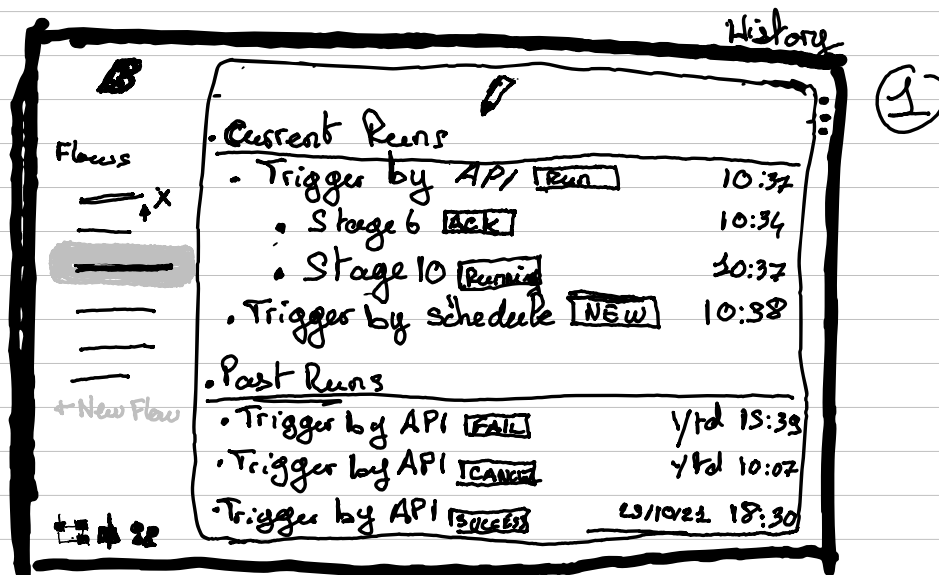 History
1
Flows
x
+ New Flow
Current Runs
Trigger by API Run 10:37
Stage 6 ACK 10:34
Stage 10 Running 10:37
Trigger by schedule NEW 10:38
Past Runs
Trigger by API FAIL Ytd 15:39
Trigger by API CANCEL Ytd 10:07
Trigger by API SUCCESS 29/10/21 18:30